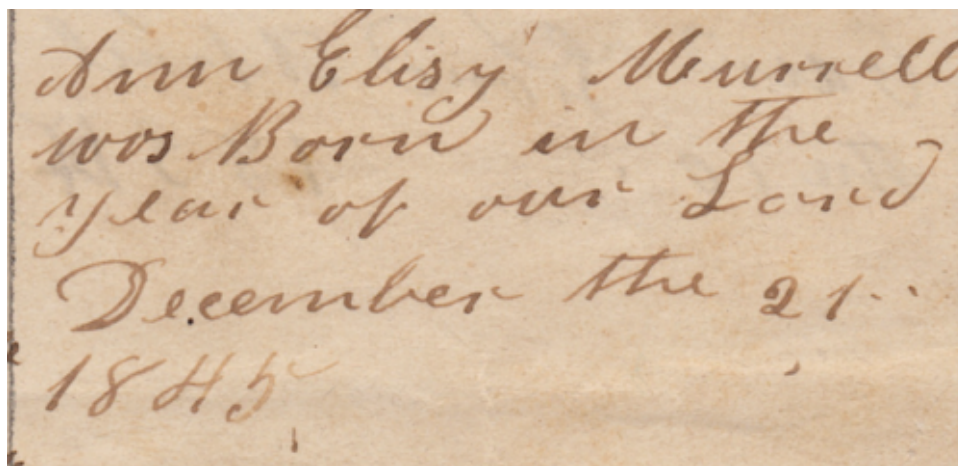 Ann Elisy Murrell
was Born in the
year of our Lord
December the 21..
1845